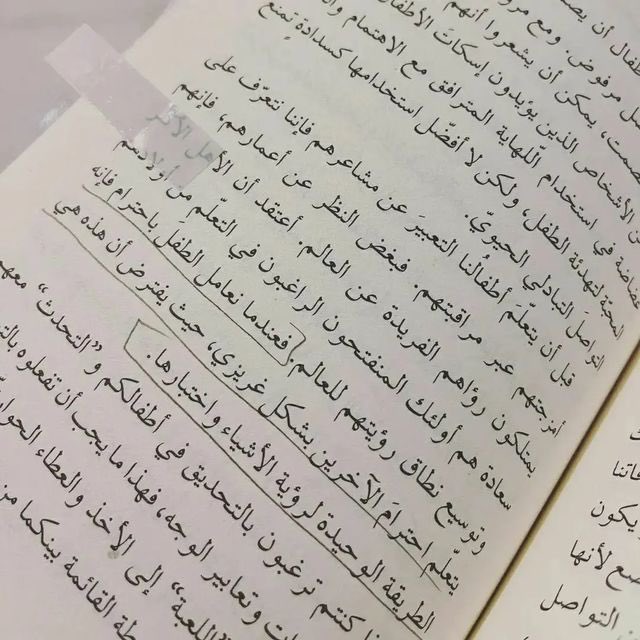 أن
مرفوض. ومع
صمت، يمكن أن يشعروا أنهم
الأشخاص الذين يؤيدون إسكات الأطفال
في استخدام اللهاية المترافق مع الاهتمام
الملحة لتهدئة الطفل، ولكن لا أفضّل استخدامها كسدادةٍ تمنع
التواصل التبادلي الحيويّ.
قبل أن يتعلّم أطفالُنا التعبيرَ عن مشاعرهم فإننا نتعرّف على
أمزجتهم عبر مراقبتهم. فبغض النظر عن أعمارهم، فإنهم
يمتلكون رؤاهم الفريدة عن العالم. أعتقد أن الأهل الأكثر
سعادة هم أولئك المنفتحون الراغبون في التعلّم من أولادهم
وتوسيع نطاق رؤيتهم للعالم. فعندما نعامل الطفل باحترام فإنه
يتعلّم احترامَ الآخرين بشكل غريزي، حيث يفترض أن هذه هي
الطريقة الوحيدة لرؤية الأشياء واختبارها.
كنتم ترغبون بالتحديق في أطفالكم و"التحدث" معهم
وتعابير الوجه، فهذا ما يجب أن تفعلوه
"اللعبة" إلى الأخذ والعطاء
القائمة بينكما
يكون
لأنها
التواصل